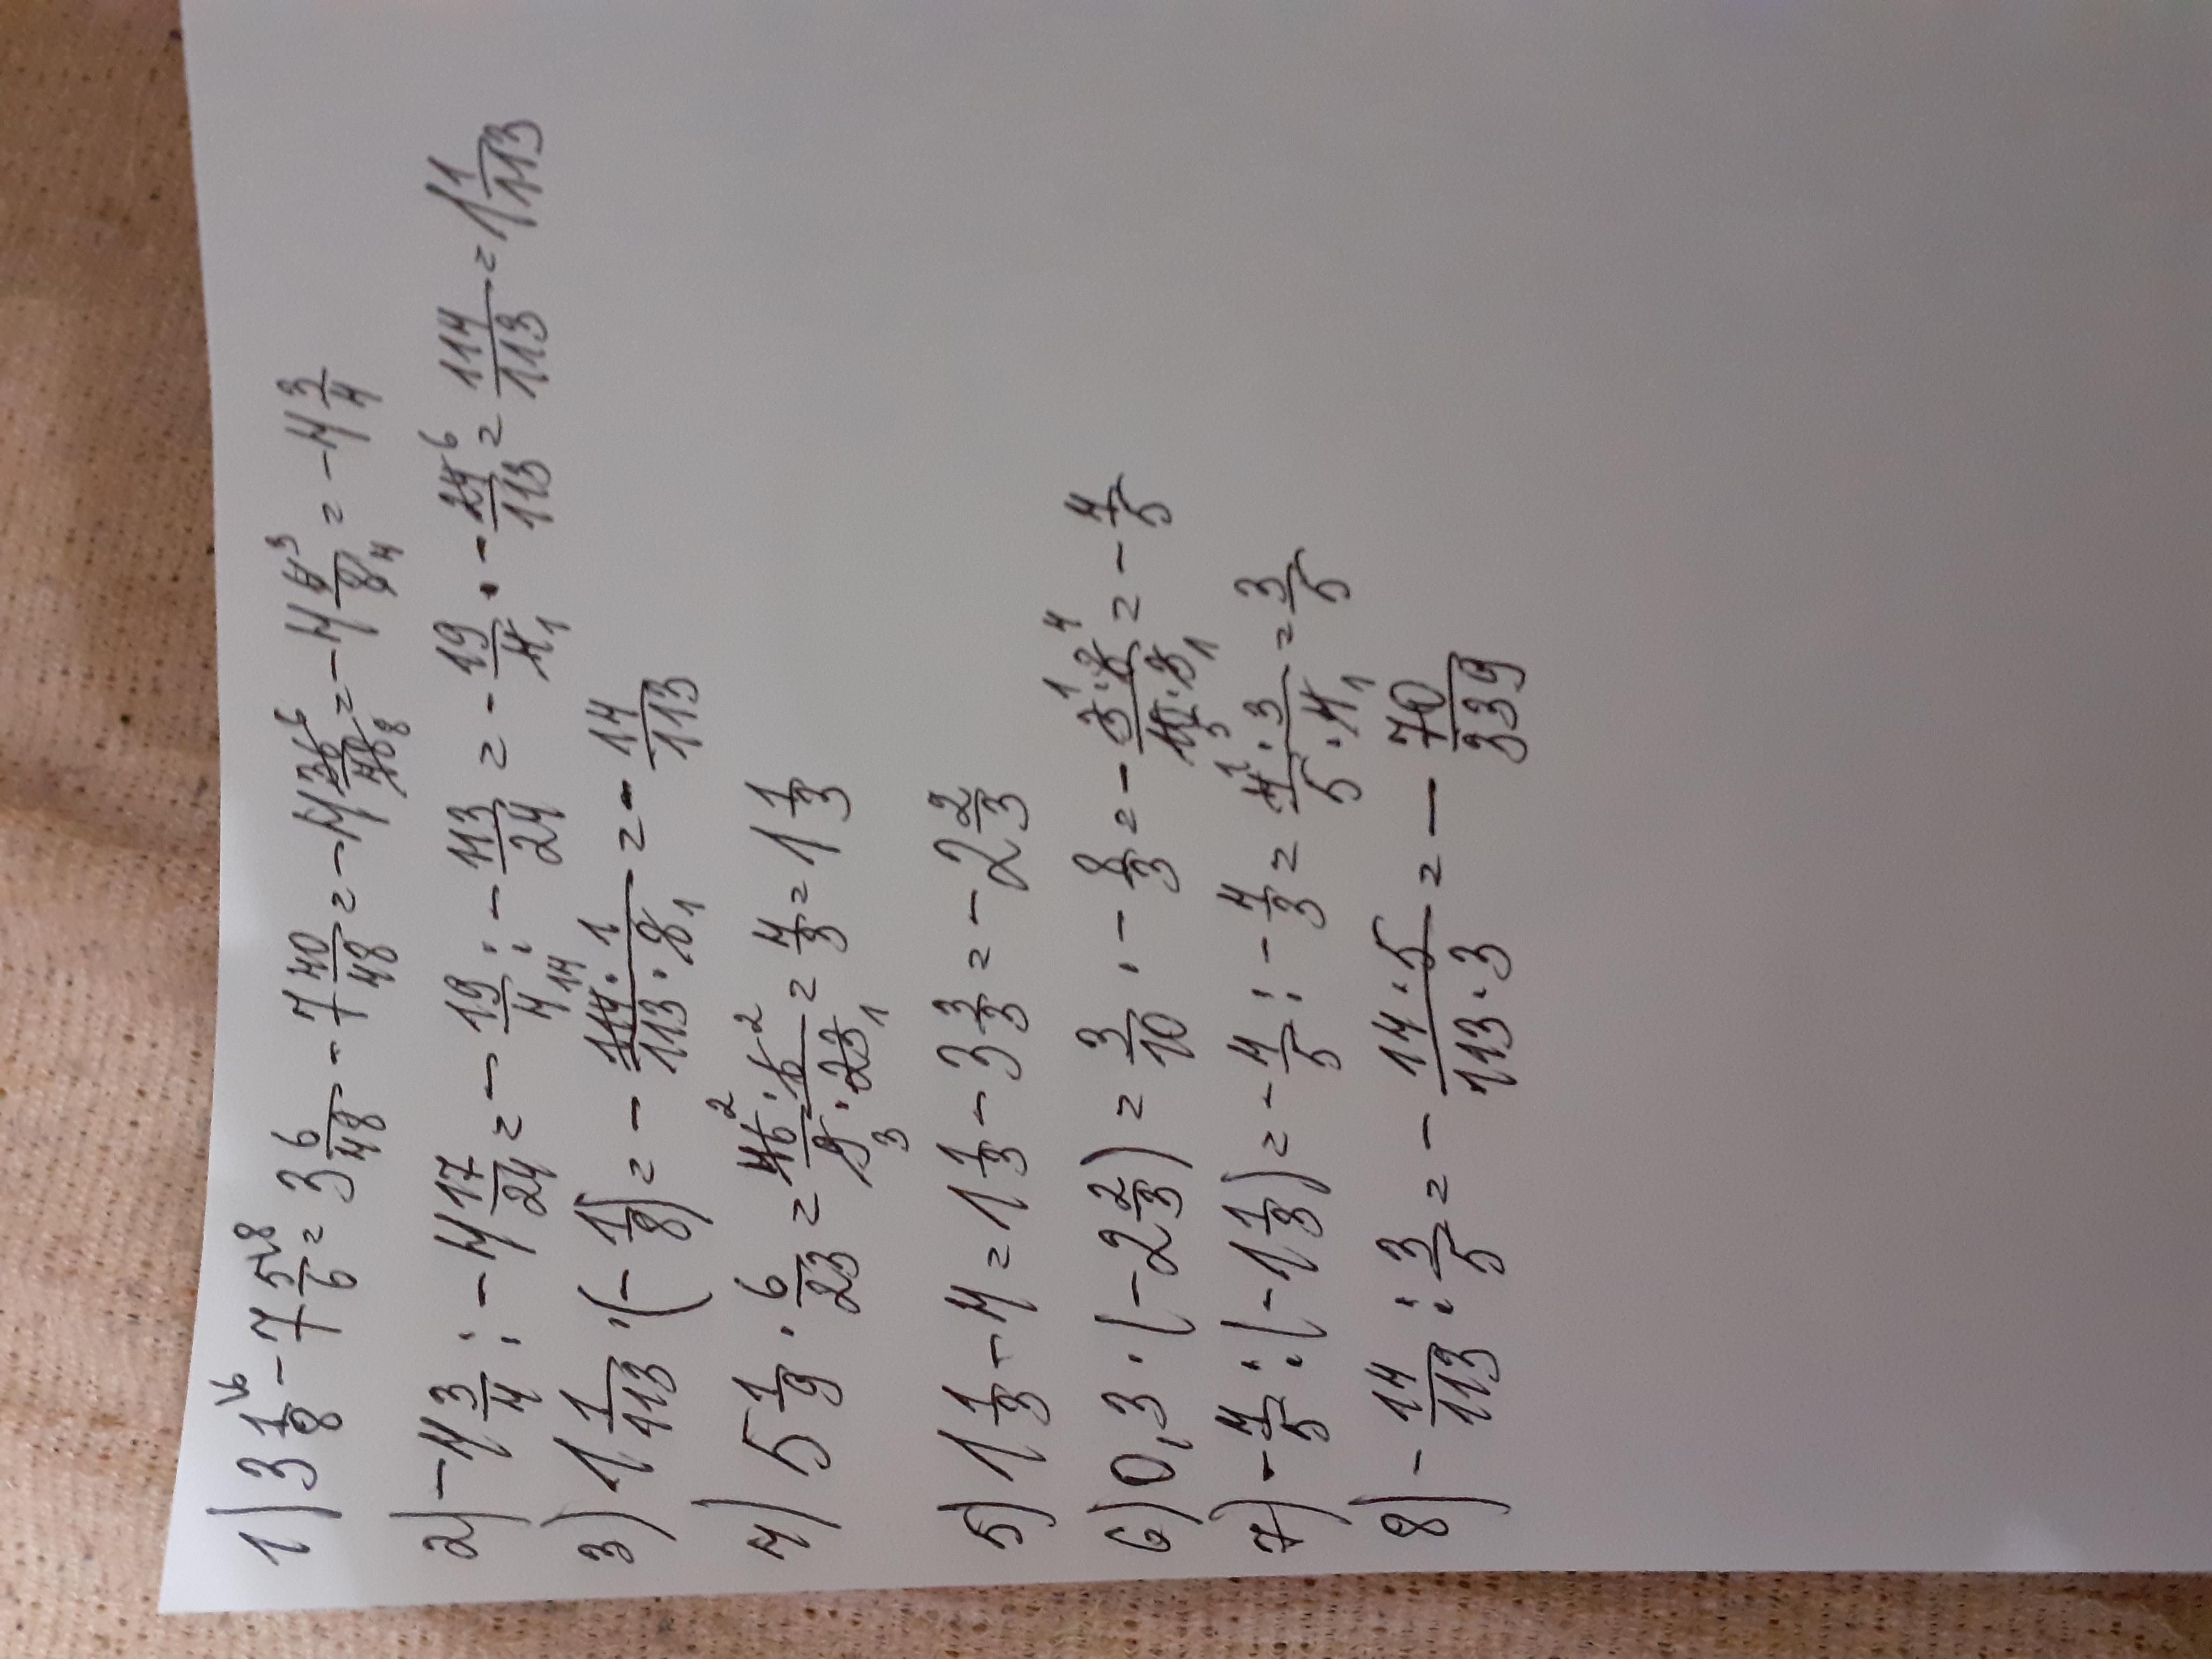 1) 3 1/8 \6 - 7 5/6 \8 = 3 6/48 - 7 40/48 = -4 36/48 6/8 = -4 6/8 3/4 = -4 3/4
2) -4 3/4 : -4 17/24 = - 19/4 : - 113/24 = - 19/4 1 · - 24/113 6 = 114/113 = 1 1/113
3) 1 1/113 · (- 1/8) = - 114 · 1/113 · 8 14/1 = - 14/113
4) 5 1/9 · 6/23 = 46 · 6/9 · 23 2 2/3 1 = 4/3 = 1 1/3
5) 1 1/3 - 4 = 1 1/3 - 3 3/3 = -2 2/3
6) 0,3 · (-2 2/3) = 3/10 · - 8/3 = - 3 · 8/10 · 3 1 4/5 1 = - 4/5
7) - 4/5 : (-1 1/3) = - 4/5 : - 4/3 = 4 · 3/5 · 4 1/1 = 3/5
8) - 14/113 : 3/5 = - 14 · 5/113 · 3 = - 70/339